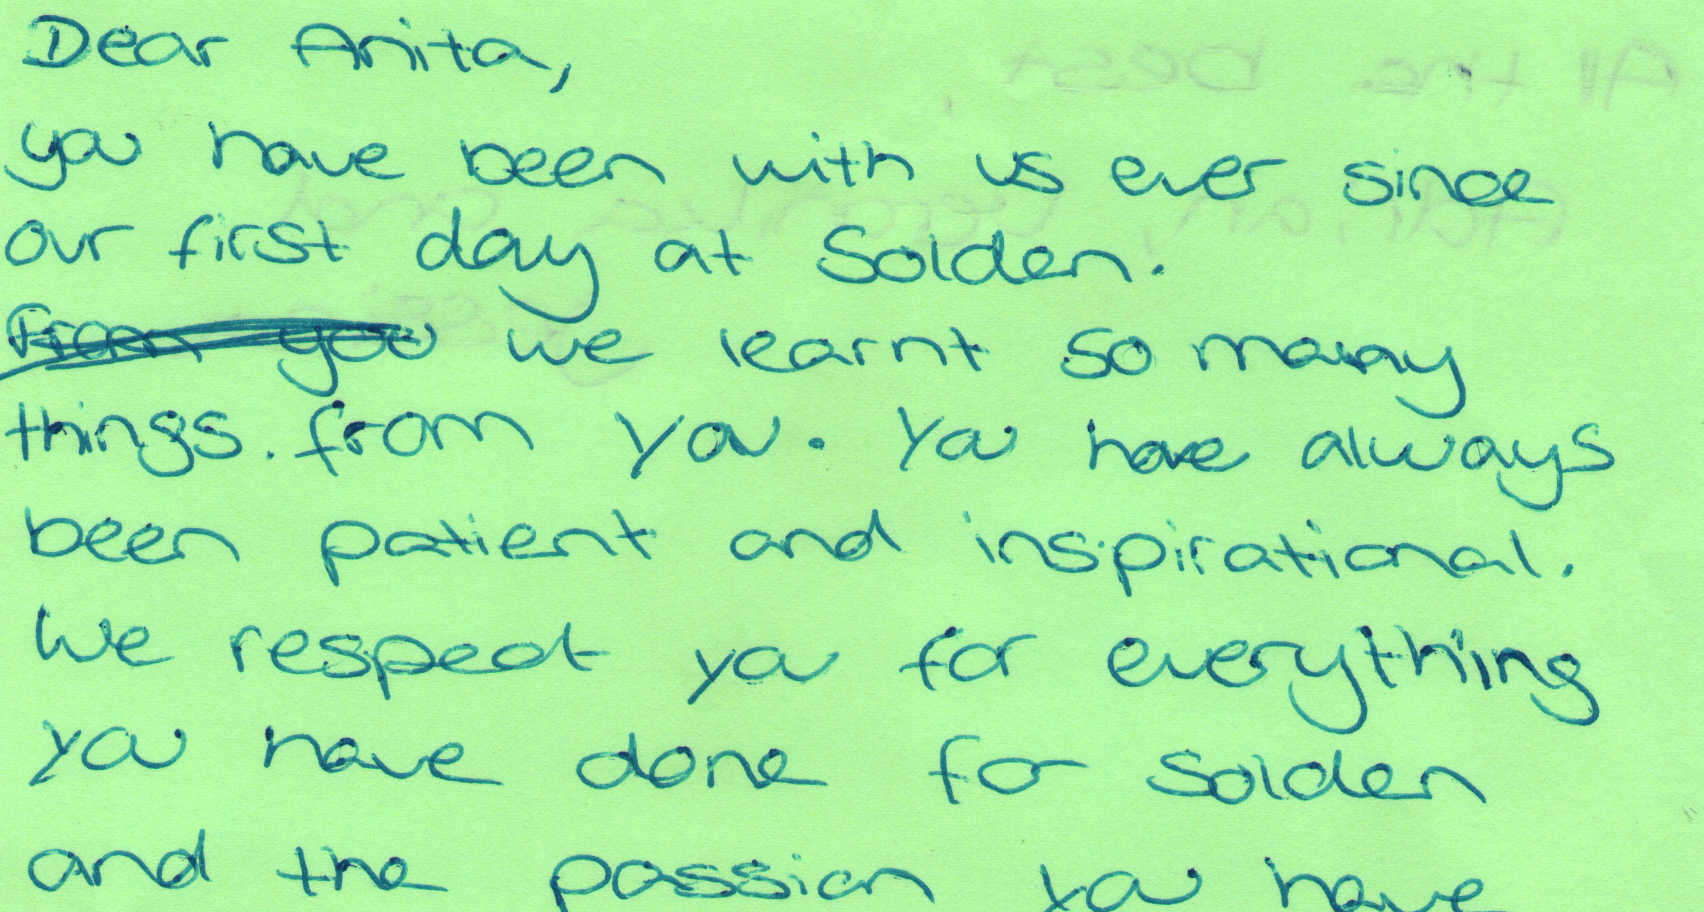 Dear Anita,
you have been with us ever since
our first day at Solden.
From you we learnt so many
things. from you. You have always
been patient and inspirational.
We respect you for everything
you have done for Solden
and the passion you have